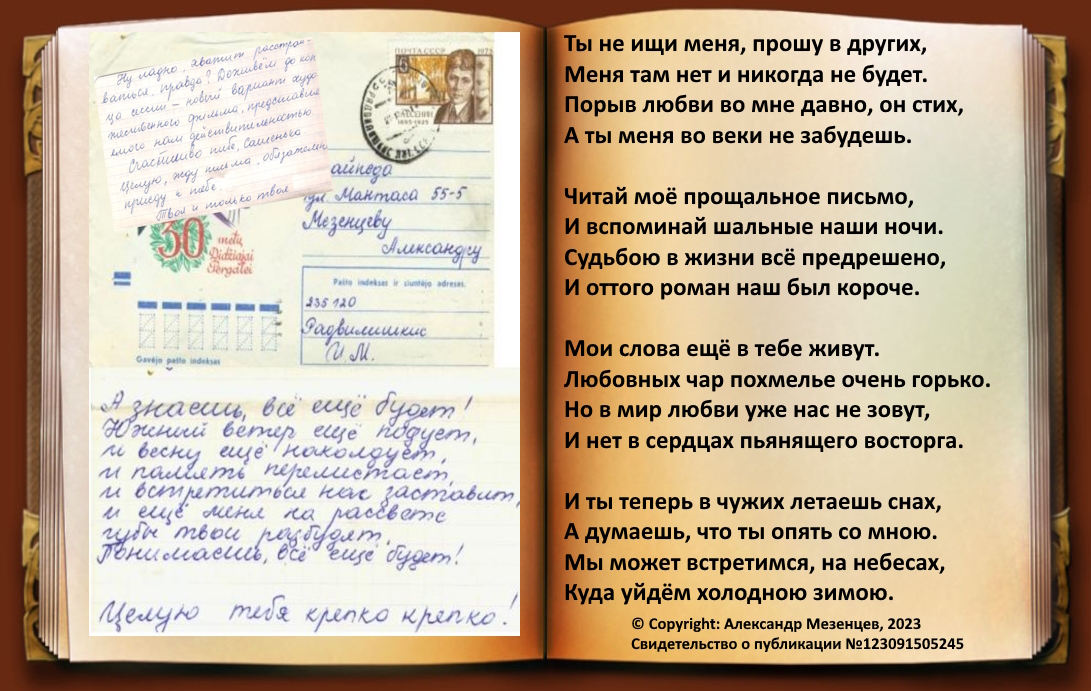 Ну ладно, хватит расстраи-
ваться, правда? Доживём до кон
ца сессии – новый вариант худо
жественного фильма, представля
емого нам действительностью
Счастливо тебе, Сашенька
Целую, жду письма, обязательно
приеду к тебе.
Твоя и только твоя
ПОЧТА СССР 1975
6
С.А.ЕСЕНИН
1895-1925
айпеда
ул. Мантаса 55-5
Мезенцеву
Александру
30 metų
Didžiajai
Pergalei
Pašto indeksas ir siuntėjo adresas
235120
Радвилишкис
И.М.
Gavėjo pašto indeksas
А знаешь, всё ещё будет!
Южный ветер ещё подует,
и весну ещё наколдует,
и память перелистает,
и встретиться нас заставит,
и ещё меня на рассвете
губы твои разбудят.
Понимаешь, всё ещё будет!
Целую тебя крепко крепко!
Ты не ищи меня, прошу в других,
Меня там нет и никогда не будет.
Порыв любви во мне давно, он стих,
А ты меня во веки не забудешь.
Читай моё прощальное письмо,
И вспоминай шальные наши ночи.
Судьбою в жизни всё предрешено,
И оттого роман наш был короче.
Мои слова ещё в тебе живут.
Любовных чар похмелье очень горько.
Но в мир любви уже нас не зовут,
И нет в сердцах пьянящего восторга.
И ты теперь в чужих летаешь снах,
А думаешь, что ты опять со мною.
Мы может встретимся, на небесах,
Куда уйдём холодною зимою.
© Copyright: Александр Мезенцев, 2023
Свидетельство о публикации №123091505245